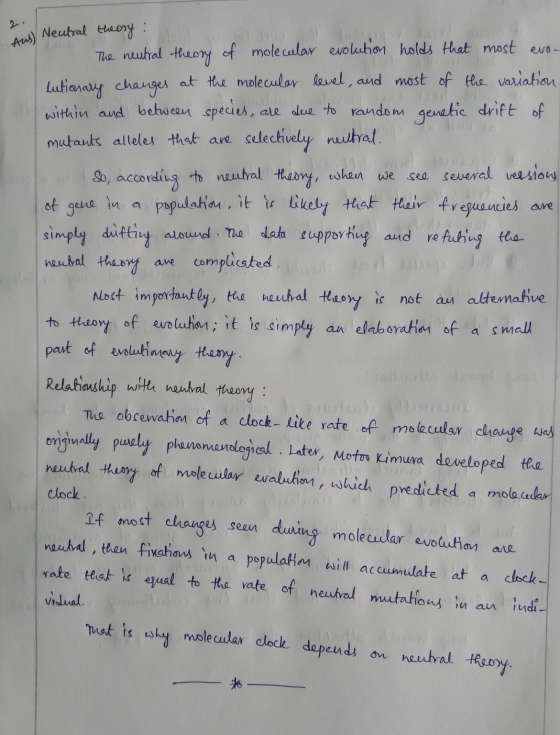 2.
Ans) Neutral theory :
The neutral theory of molecular evolution holds that most evo-
lutionary changes at the molecular level, and most of the variation
within and between species, are due to random genetic drift of
mutants alleles that are selectively neutral.
So, according to neutral theory, when we see several versions
of gene in a population, it is likely that their frequencies are
simply drifting around. The data supporting and refuting the
neutral theory are complicated.
Most importantly, the neutral theory is not an alternative
to theory of evolution; it is simply an elaboration of a small
part of evolutionary theory.
Relationship with neutral theory :
The observation of a clock-like rate of molecular change was
originally purely phenomenological. Later, Motoo Kimura developed the
neutral theory of molecular evalution, which predicted a molecular
clock.
If most changes seen during molecular evolution are
neutral, then fixations in a population will accumulate at a clock-
rate that is equal to the rate of neutral mutations in an indi-
vidual.
That is why molecular clock depends on neutral theory.